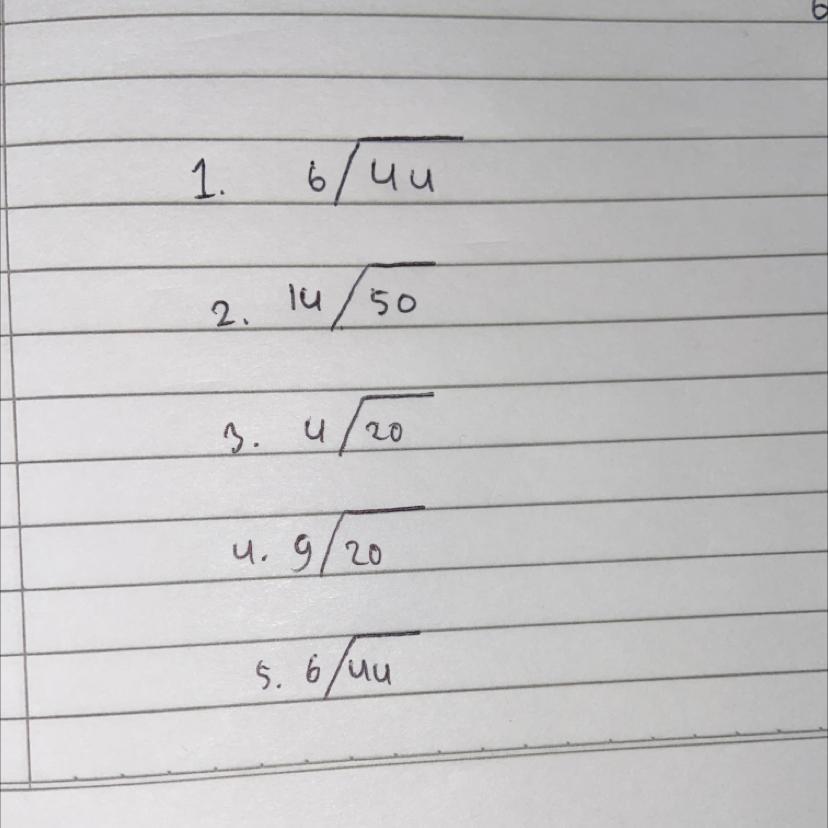 6
1. 6/44
2. 14/50
3. 4/20
4. 9/20
5. 6/44